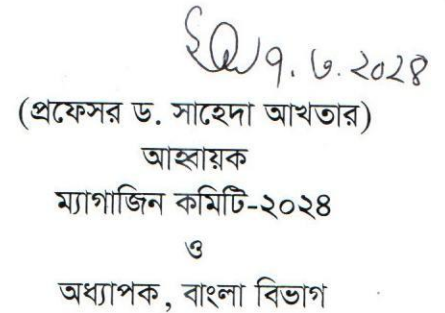 ৭.৩.২০২৪
(প্রফেসর ড. সাহেদা আখতার)
আহ্বায়ক
ম্যাগাজিন কমিটি-২০২৪
ও
অধ্যাপক, বাংলা বিভাগ